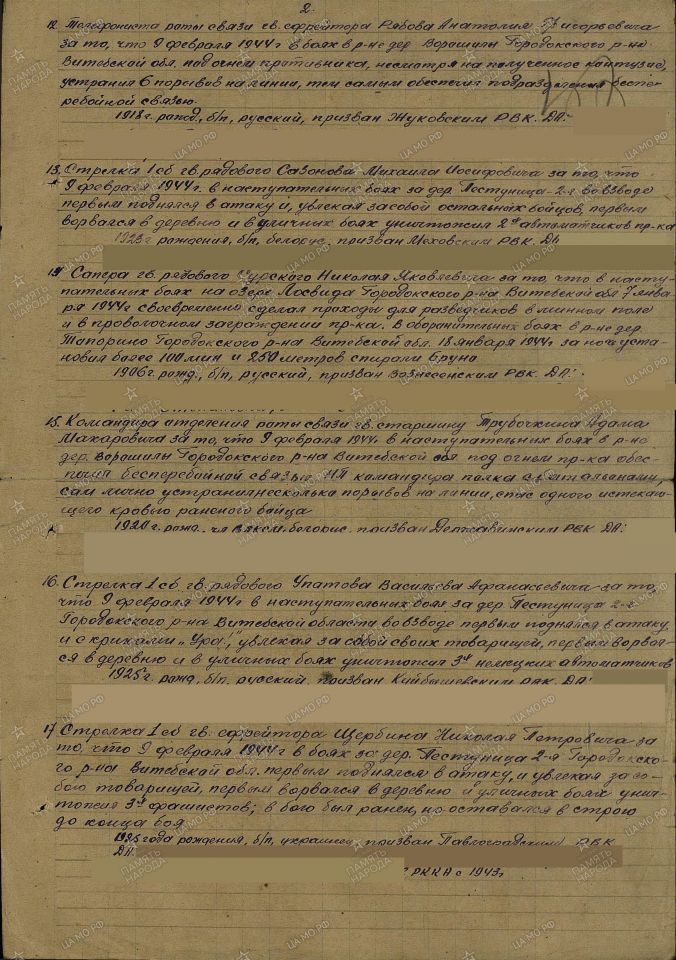 2.
12. Телефониста роты связи гв. ефрейтора Рябова Анатолия Григорьевича
за то, что 9 февраля 1944 г в боях в р-не дер Ворошилы Городокского р-на
Витебской обл. под огнем противника, несмотря на полученное контузие,
устранил 6 порывов на линии, тем самым обеспечил подразделения беспе-
ребойной связью.
1918 г. рожд, б/п, русский, призван Жуковским РВК. ДА:
13. Стрелка 1 сб гв. рядового Сазонова Михаила Иосифовича за то, что
9 февраля 1944 г. в наступательных боях за дер. Пестуница-2-я во взводе
первым поднялся в атаку и, увлекая за собой остальных бойцов, первым
ворвался в деревню и в уличных боях уничтожил 2х автоматчиков пр-ка
рождения, б/п, белорус, призван Меховским РВК. ДА
14 Сапера гв. рядового Николая Яковлевича за то, что в насту-
пательных боях на озере Лосвида Городокского р-на Витебской обл 7 янва-
ря 1944 г своевременно сделал проходы для разведчиков в минном поле
и в проволочном заграждении пр-ка. В оборонительных боях в р-не дер.
Топорино Городокского р-на Витебской обл. 18 января 1944 г за ночь уста-
новил более 100 мин и 250 метров спирали Бруна
1906 г. рожд., б/п, русский, призван Вознесенским РВК. ДА:
15. Командира отделения роты связи гв. старшину Трубочкина Адама
Макаровича за то, что 9 февраля 1944 г. в наступательных боях в р-не
дер. Ворошилы Городокского р-на Витебской обл под огнем пр-ка обес-
печил бесперебойной связью НП командира полка с батальонами,
сам лично устранил несколько порывов на линии, спас одного истекаю-
щего кровью раненого бойца
1920 г. рожд., чл ВЛКСМ, белорус. призван РВК ДА:
16. Стрелка 1 сб. гв. рядового Упатова Василева Афанасьевича за то,
что 9 февраля 1944 г в наступательных боях за дер Пестуница 2-я
Городокского р-на Витебской области во взводе первым поднялся в атаку
и с криками „Ура!" увлекая за собой своих товарищей, первым ворвал-
ся в деревню и в уличных боях уничтожил 3х немецких автоматчиков
1925 г. рожд, б/п. русский, призван Куйбышевским РВК. ДА:
17 Стрелка 1 сб гв. ефрейтора Щербина Николая Петровича за
то, что 9 февраля 1944 г в боях за дер. Пестуница 2-я Городокско-
го р-на Витебской обл. первым поднялся в атаку, и увлекая за со-
бою товарищей, первым ворвался в деревню и уличных боях унич-
тожил 3х фашистов; в бою был ранен, но оставался в строю
до конца боя
1925 года рождения, б/п, украинец, призван Павлоградским РВК
ДА:
РККА с 1943 г